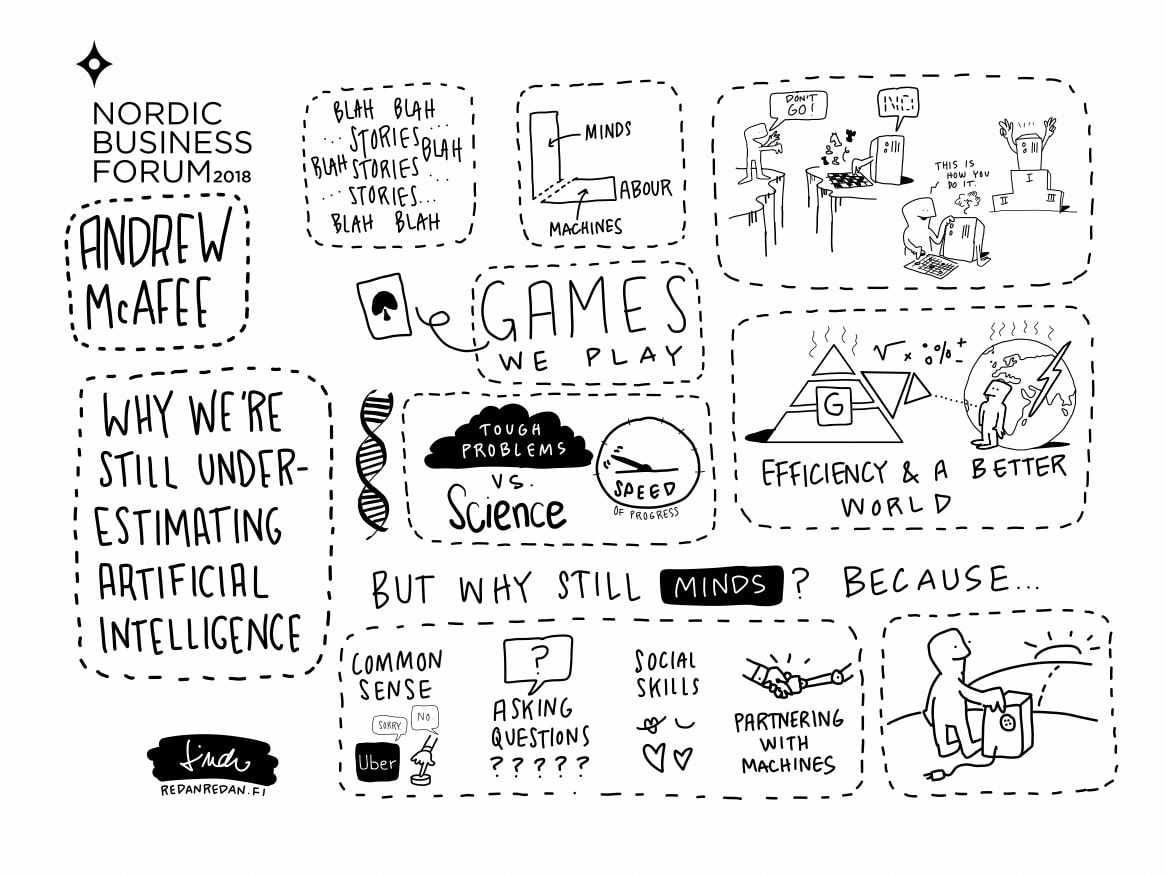 NORDIC
BUSINESS
FORUM2018
ANDREW
McAFEE
WHY WE'RE
STILL UNDER-
ESTIMATING
ARTIFICIAL
INTELLIGENCE
REDANREDAN.FI
BLAH BLAH
.. STORIES...
BLAH STORIES BLAH
.. STORIES...
BLAH BLAH
MINDS
LABOUR
MACHINES
DON'T
GO!
NO.
THIS IS
HOW YOU
DO IT.
I
GAMES
WE PLAY
TOUGH
PROBLEMS
VS.
Science
SPEED
OF PROGRESS
G
√x % + -
EFFICIENCY & A BETTER
WORLD
BUT WHY STILL MINDS? BECAUSE...
COMMON
SENSE
SORRY
NO.
Uber
?
ASKING
QUESTIONS
? ? ? ? ?
SOCIAL
SKILLS
PARTNERING
WITH
MACHINES